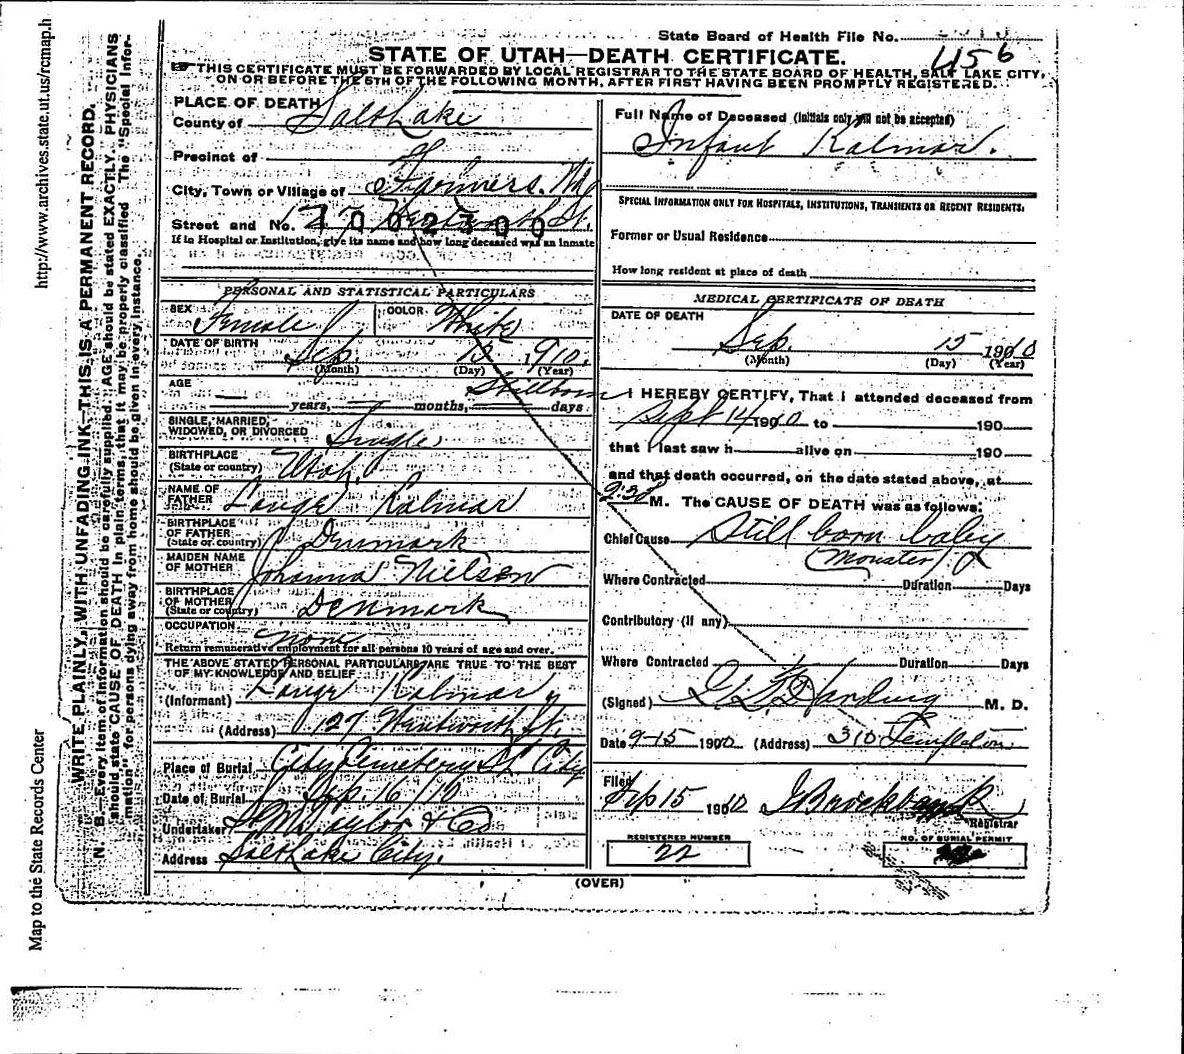 http://www.archives.state.ut.us/rcmap.h
Map to the State Records Center
WRITE PLAINLY, WITH UNFADING INK—THIS IS A PERMANENT RECORD.
N. B.—Every item of information should be carefully supplied. AGE should be stated EXACTLY. PHYSICIANS
should state CAUSE OF DEATH in plain terms, that it may be properly classified. The "Special Infor-
mation" for persons dying away from home should be given in every instance.
State Board of Health File No.
456
STATE OF UTAH—DEATH CERTIFICATE.
THIS CERTIFICATE MUST BE FORWARDED BY LOCAL REGISTRAR TO THE STATE BOARD OF HEALTH, SALT LAKE CITY,
ON OR BEFORE THE 5TH OF THE FOLLOWING MONTH, AFTER FIRST HAVING BEEN PROMPTLY REGISTERED.
PLACE OF DEATH
County of Salt Lake
Precinct of
City, Town or Village of Farmers. Wd
Street and No. 127 Wentworth St.
1002300
If in Hospital or Institution, give its name and how long deceased was an inmate
PERSONAL AND STATISTICAL PARTICULARS
SEX Female COLOR White
DATE OF BIRTH Sep. 15, 1910.
(Month) (Day) (Year)
AGE Stillborn
years, months, days
SINGLE, MARRIED, WIDOWED, OR DIVORCED Single
BIRTHPLACE (State or country) Utah
NAME OF FATHER Lauge Kalmar
BIRTHPLACE OF FATHER (State or country) Denmark
MAIDEN NAME OF MOTHER Johanna Nielson
BIRTHPLACE OF MOTHER (State or country) Denmark
OCCUPATION none
Return remunerative employment for all persons 10 years of age and over.
THE ABOVE STATED PERSONAL PARTICULARS ARE TRUE TO THE BEST
OF MY KNOWLEDGE AND BELIEF
(Informant) Lauge Kalmar
(Address) 127 Wentworth St.
Place of Burial City Cemetery S L City
Date of Burial Sep. 16/10
Undertaker S. M. Taylor & Co
Address Salt Lake City.
Full Name of Deceased (Initials only will not be accepted)
Infant Kalmar.
SPECIAL INFORMATION ONLY FOR HOSPITALS, INSTITUTIONS, TRANSIENTS OR RECENT RESIDENTS.
Former or Usual Residence
How long resident at place of death
MEDICAL CERTIFICATE OF DEATH
DATE OF DEATH
Sep. 15 1910
(Month) (Day) (Year)
I HEREBY CERTIFY, That I attended deceased from
Sept 14 1910 to 190
that I last saw h alive on 190
and that death occurred, on the date stated above, at
M. The CAUSE OF DEATH was as follows:
Chief Cause Still born baby
(Monster)
Where Contracted Duration Days
Contributory (if any)
Where Contracted Duration Days
(Signed) Harding M. D.
Date 9-15 1910 (Address) 310 Templeton
Filed
Sep 15 1910 Registrar
REGISTERED NUMBER
22
NO. OF BURIAL PERMIT
(OVER)